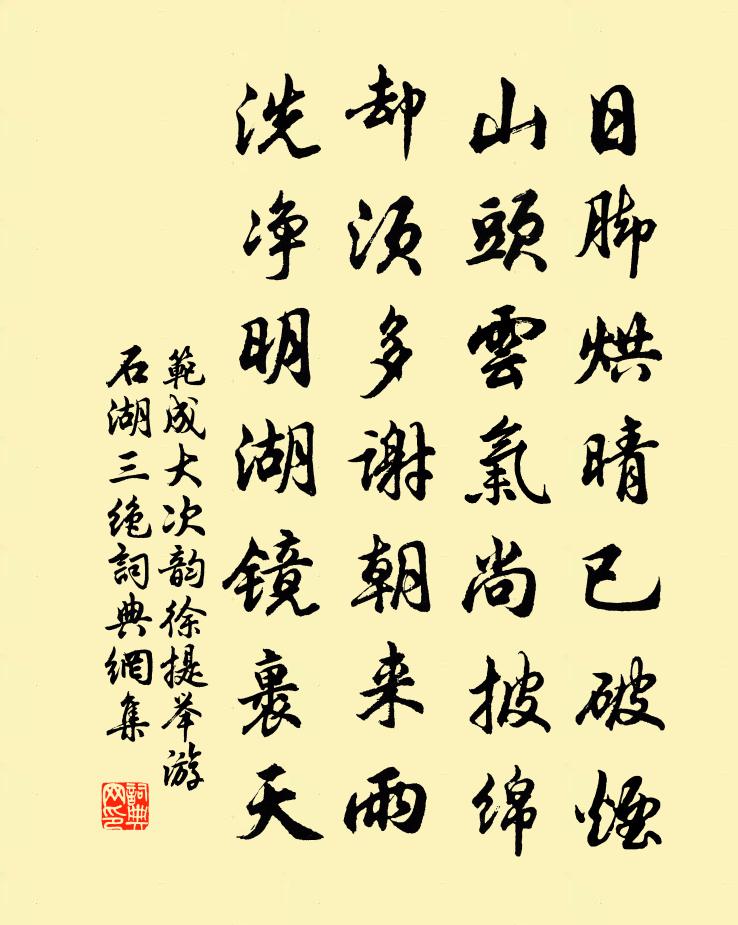 日脚烘晴已破煙
山頭雲氣尚披綿
却須多謝朝来雨
洗净明湖镜裹天
範成大次韵徐提举游
石湖三绝詞典網集
詞典
网印